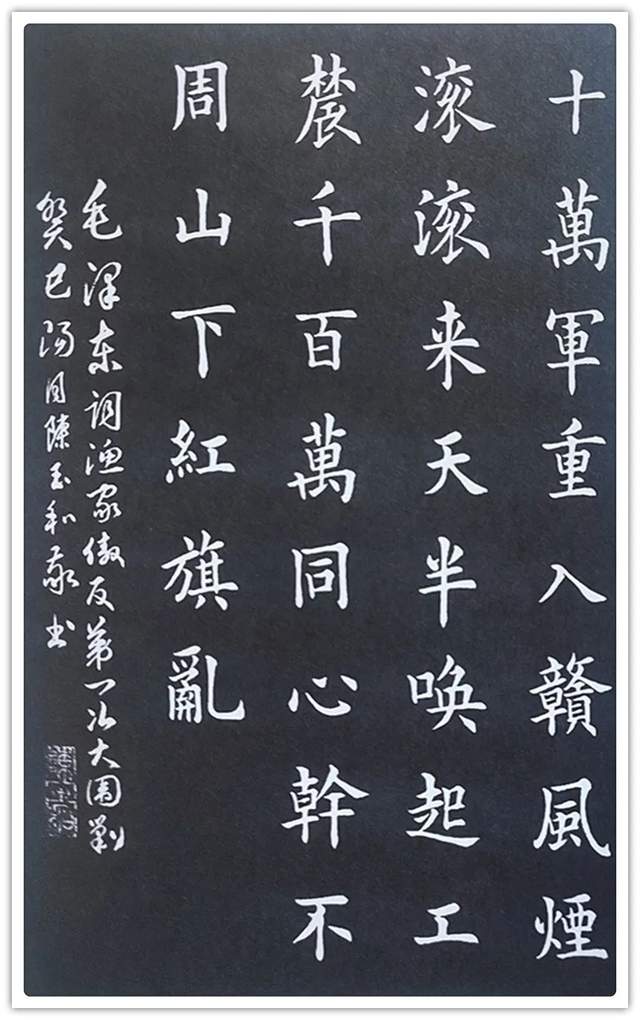 十萬軍重入贛風煙
滚滚来天半唤起工
農千百萬同心幹不
周山下紅旗亂
毛澤東詞漁家傲反第一次大圍剿
癸巳陽月陳玉和敬书